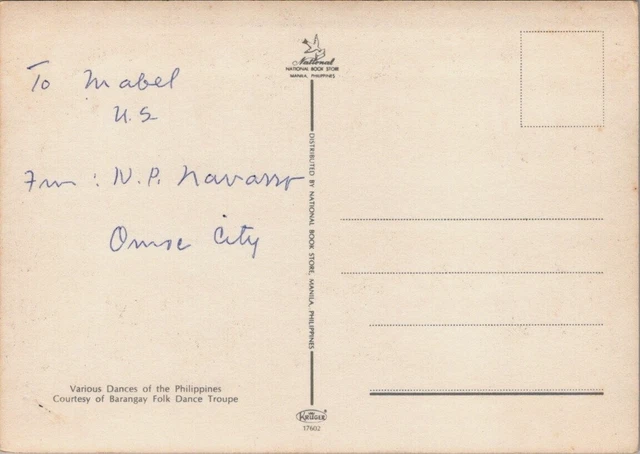 To Mabel
U.S
From : N.P. Navarro
City
Various Dances of the Philippines
Courtesy of Barangay Folk Dance Troupe
National
NATIONAL BOOK STORE
MANILA, PHILIPPINES
DISTRIBUTED BY NATIONAL BOOK STORE, MANILA, PHILIPPINES
KRÜGER
17602